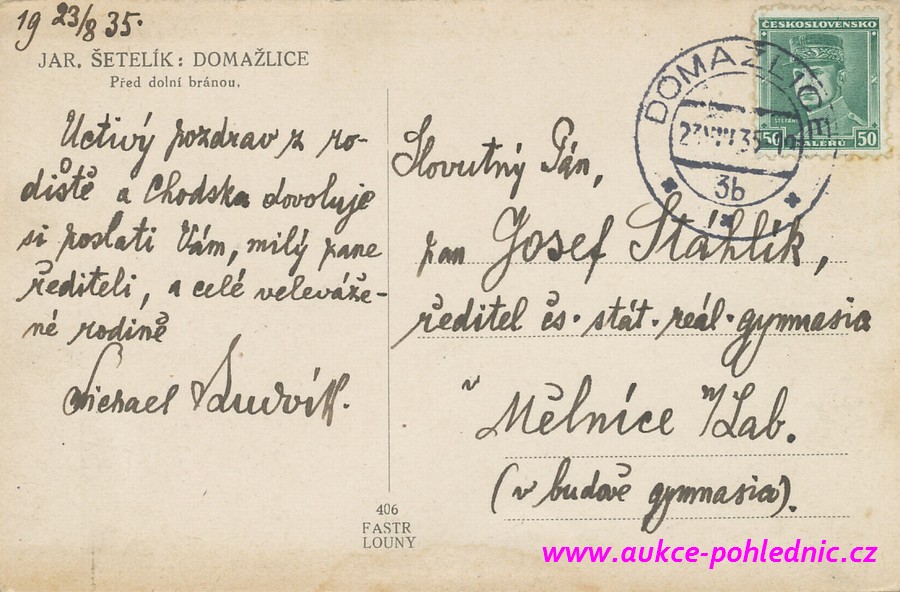 19 23/8 35.
JAR. ŠETELÍK: DOMAŽLICE
Před dolní bránou.
Uctivý pozdrav z ro-
diště a Chodska dovoluje
si poslati Vám, milý pane
řediteli, a celé veleváže-
né rodině
Michael Ludvík.
406
FASTR
LOUNY
ČESKOSLOVENSKO
ŠTEFÁNIK
50 HALÉŘŮ 50
DOMAŽLICE
23.VIII.35
3b
Slovutný Pán,
pan Josef Stáhlík,
ředitel čs. stát. reál. gymnasia
v
Mělníce n/Lab.
(v budově gymnasia).
www.aukce-pohlednic.cz